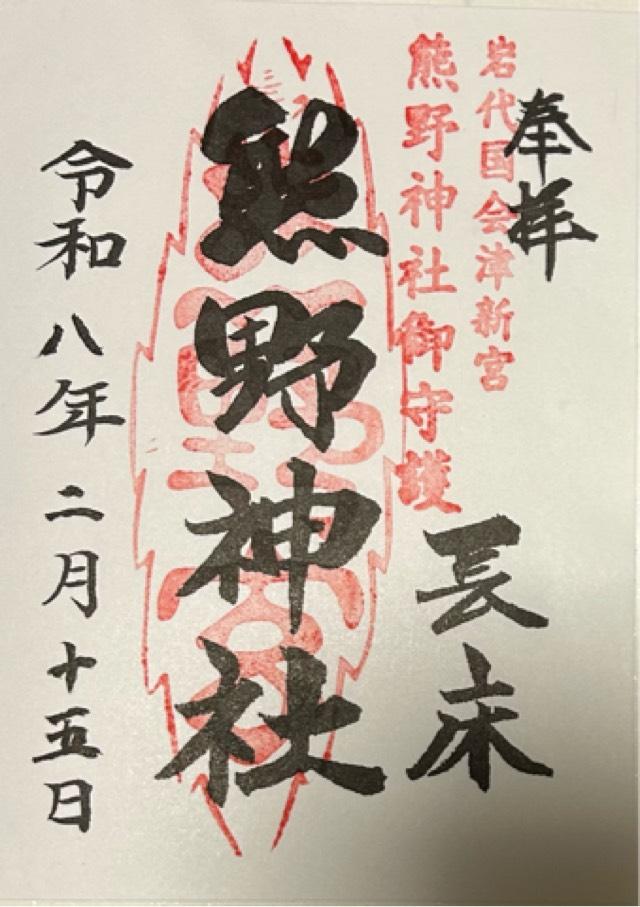 奉拝
岩代国会津新宮
熊野神社御守護
長床
熊野神社
令和八年二月十五日